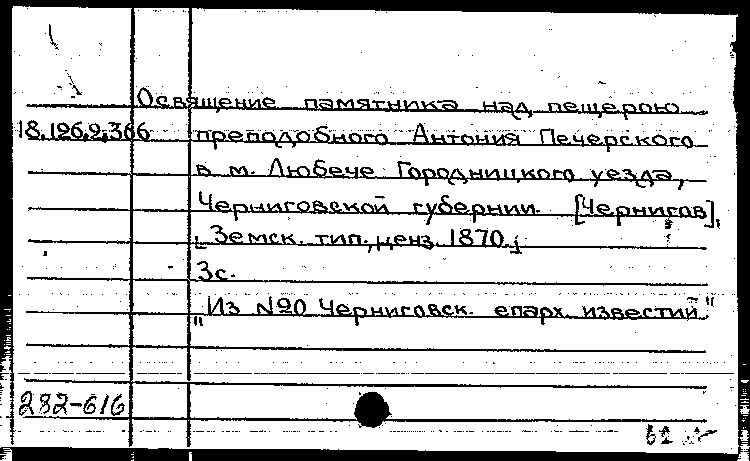 Освящение памятника над пещерою
18.126.2.366 преподобного Антония Печерского
в м. Любече Городницкого уезда,
Черниговской губернии. [Чернигов],
Земск. тип., ценз. 1870.
3с.
"Из №20 Черниговск. епарх. известий."
282-616
62